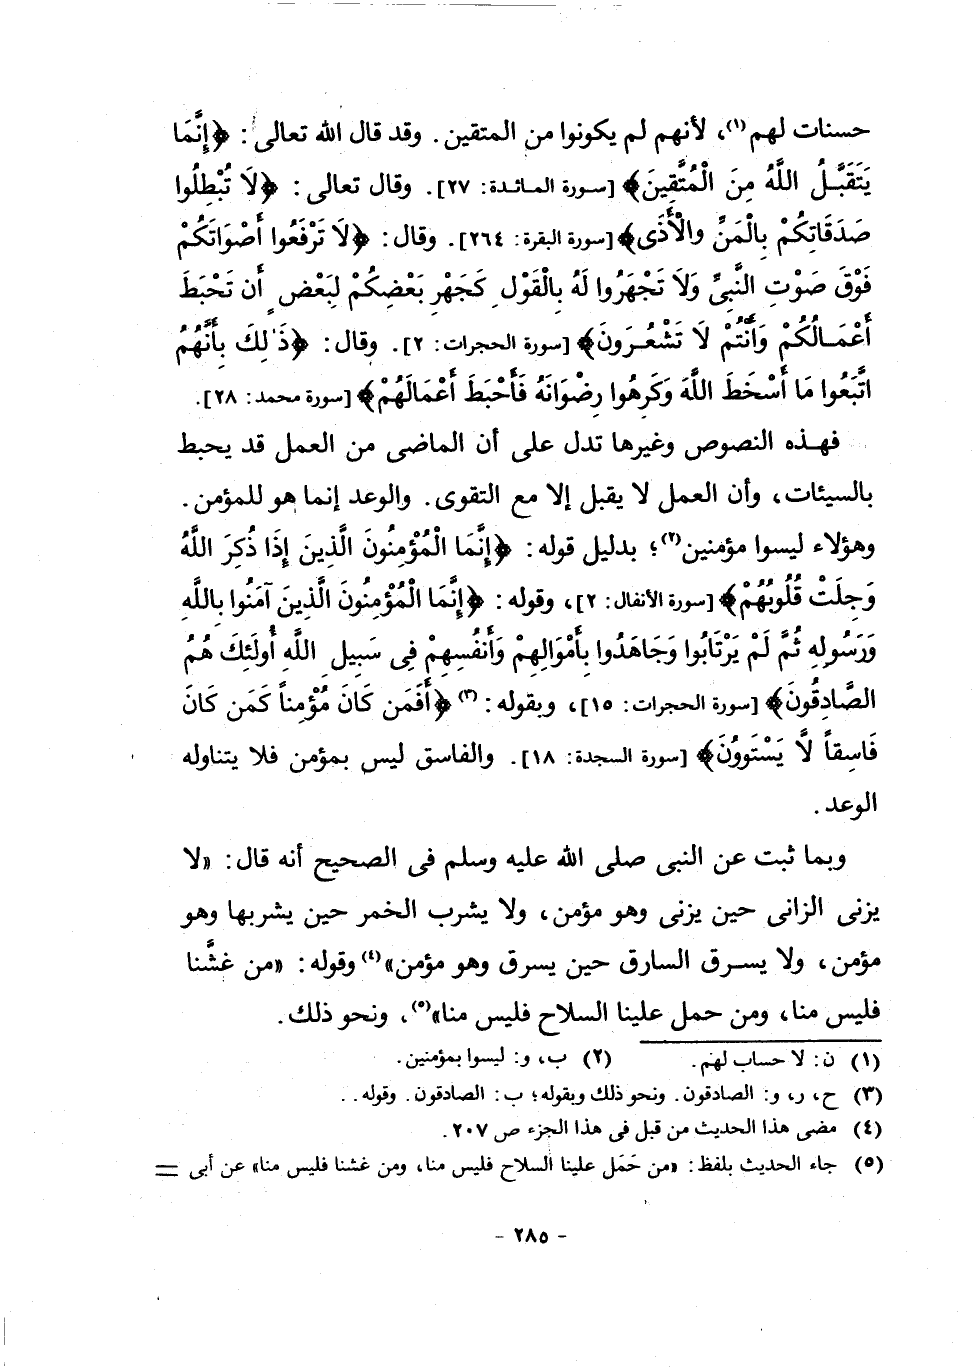 حسنات لهم(١)، لأنهم لم يكونوا من المتقين. وقد قال الله تعالى: ﴿إِنَّمَا
يَتَقَبَّلُ اللَّهُ مِنَ الْمُتَّقِينَ﴾ [سورة المائدة: ٢٧]. وقال تعالى: ﴿لَا تُبْطِلُوا
صَدَقَاتِكُمْ بِالْمَنِّ وَالْأَذَى﴾ [سورة البقرة: ٢٦٤]. وقال: ﴿لَا تَرْفَعُوا أَصْوَاتَكُمْ
فَوْقَ صَوْتِ النَّبِيِّ وَلَا تَجْهَرُوا لَهُ بِالْقَوْلِ كَجَهْرِ بَعْضِكُمْ لِبَعْضٍ أَن تَحْبَطَ
أَعْمَالُكُمْ وَأَنْتُمْ لَا تَشْعُرُونَ﴾ [سورة الحجرات: ٢]. وقال: ﴿ذَٰلِكَ بِأَنَّهُمُ
اتَّبَعُوا مَا أَسْخَطَ اللَّهَ وَكَرِهُوا رِضْوَانَهُ فَأَحْبَطَ أَعْمَالَهُمْ﴾ [سورة محمد: ٢٨].
فهذه النصوص وغيرها تدل على أن الماضى من العمل قد يحبط
بالسيئات، وأن العمل لا يقبل إلا مع التقوى. والوعد إنما هو للمؤمن.
وهؤلاء ليسوا مؤمنين(٢)؛ بدليل قوله: ﴿إِنَّمَا الْمُؤْمِنُونَ الَّذِينَ إِذَا ذُكِرَ اللَّهُ
وَجِلَتْ قُلُوبُهُمْ﴾ [سورة الأنفال: ٢]، وقوله: ﴿إِنَّمَا الْمُؤْمِنُونَ الَّذِينَ آمَنُوا بِاللَّهِ
وَرَسُولِهِ ثُمَّ لَمْ يَرْتَابُوا وَجَاهَدُوا بِأَمْوَالِهِمْ وَأَنفُسِهِمْ فِى سَبِيلِ اللَّهِ أُولَئِكَ هُمُ
الصَّادِقُونَ﴾ [سورة الحجرات: ١٥]، وبقوله:(٣) ﴿أَفَمَن كَانَ مُؤْمِناً كَمَن كَانَ
فَاسِقاً لَّا يَسْتَوُونَ﴾ [سورة السجدة: ١٨]. والفاسق ليس بمؤمن فلا يتناوله
الوعد.
وبما ثبت عن النبى صلى الله عليه وسلم فى الصحيح أنه قال: «لا
يزنى الزانى حين يزنى وهو مؤمن، ولا يشرب الخمر حين يشربها وهو
مؤمن، ولا يسرق السارق حين يسرق وهو مؤمن»(٤) وقوله: «من غشَّنا
فليس منا، ومن حمل علينا السلاح فليس منا»(٥)، ونحو ذلك.
(١) ن: لا حساب لهم. (٢) ب، و: ليسوا بمؤمنين.
(٣) ح، ر، و: الصادقون. ونحو ذلك وبقوله؛ ب: الصادقون. وقوله. .
(٤) مضى هذا الحديث من قبل فى هذا الجزء ص ٢٠٧.
(٥) جاء الحديث بلفظ: «من حَمَل علينا السلاح فليس منا، ومن غشنا فليس منا» عن أبى =
- ٢٨٥ -